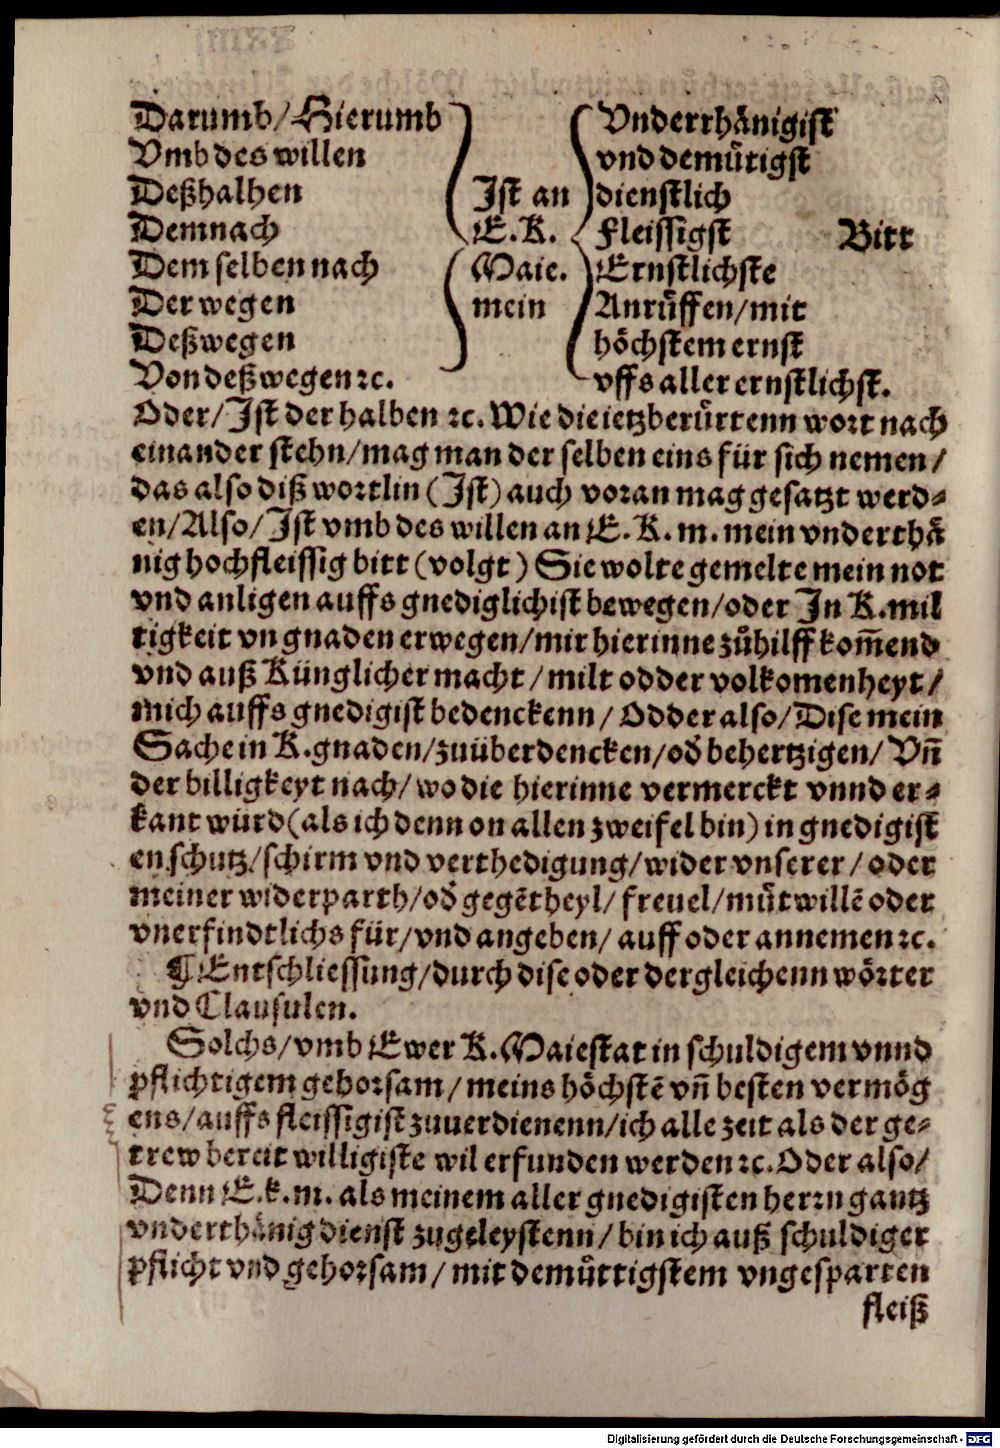 Darumb/Hierumb
Vmb des willen
Deßhalben
Demnach
Dem selben nach
Der wegen
Deßwegen
Von deß wegen ꝛc.
Ist an
E. K.
Maie.
mein
Vnderthånigist
vnd demůtigst
dienstlich
Fleissigst
Ernstlichste
Anrůffen/mit
höchstem ernst
vffs aller ernstlichst.
Bitt
Oder/Ist der halben ꝛc. Wie die ietzberůrtenn wort nach
einander stehn/mag man der selben eins für sich nemen/
das also diß wortlin (Ist) auch voran mag gesatzt werd⸗
en/Also/Ist vmb des willen an E. K. m. mein vnderthå
nig hochfleissig bitt (volgt) Sie wolte gemelte mein not
vnd anligen auffs gnediglichist bewegen/oder In K. mil
tigkeit vn gnaden erwegen/mir hierinne zůhilff kom̄end
vnd auß Künglicher macht/milt odder volkomenheyt/
mich auffs gnedigist bedenckenn/Odder also/Dise mein
Sache in K. gnaden/zuüberdencken/od̄ behertzigen/Vn̄
der billigkeyt nach/wo die hierinne vermerckt vnnd er⸗
kant würd (als ich denn on allen zweifel bin) in gnedigist
en schutz/schirm vnd verthedigung/wider vnserer/oder
meiner widerparth/od̄ gegētheyl/freuel/můtwillē oder
vnerfindtlichs für/vnd angeben/auff oder annemen ꝛc.
¶ Entschliessung/durch dise oder dergleichenn wörter
vnd Clausulen.
Solchs/vmb Ewer K. Maiestat in schuldigem vnnd
pflichtigem gehorsam/meins höchstē vn̄ besten vermög
ens/auffs fleissigist zuuerdienenn/ich alle zeit als der ge⸗
trew bereit willigiste wil erfunden werden ꝛc. Oder also/
Denn E. k. m. als meinem aller gnedigisten herrn gantz
vnderthånig dienst zugeleystenn/bin ich auß schuldiger
pflicht vnd gehorsam/mit demůttigstem vngesparten
fleiß
Digitalisierung gefördert durch die Deutsche Forschungsgemeinschaft - DFG